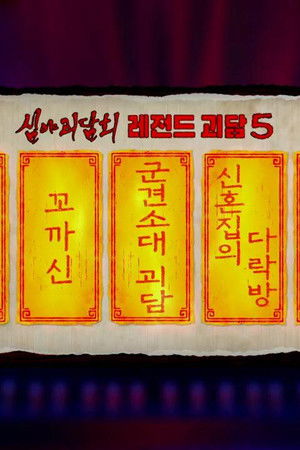 심야괴담회 레전드 괴담 5
꼬까신
군견소대 괴담
신혼집의
다락방